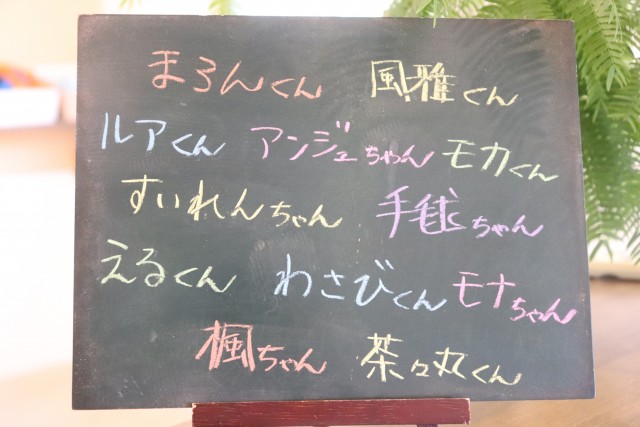 まろんくん 風雅くん
ルアくん アンジュちゃん モカくん
すいれんちゃん 手毬ちゃん
えるくん わさびくん モナちゃん
楓ちゃん 茶々丸くん